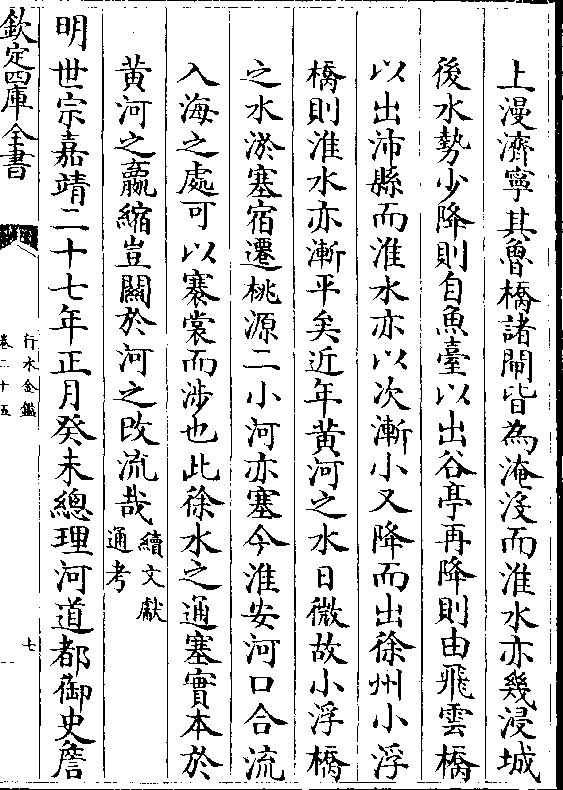 上漫濟寧其魯橋諸閘皆為淹沒而淮水亦幾浸城
後水勢少降則自魚臺以出谷亭再降則由飛雲橋
以出沛縣而淮水亦以次漸小又降而出徐州小浮
橋則淮水亦漸平矣近年黃河之水日微故小浮橋
之水淤塞宿遷桃源二小河亦塞今淮安河口合流
入海之處可以褰裳而涉也此徐水之通塞實本於
黃河之羸縮豈關於河之改流哉續文獻
通考
明世宗嘉靖二十七年正月癸未總理河道都御史詹
欽定四庫全書
行水金鑑
卷二十五
七